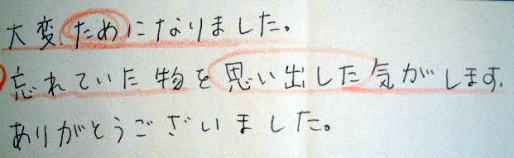 大変ためになりました。
忘れていた物を思い出した気がします。
ありがとうございました。